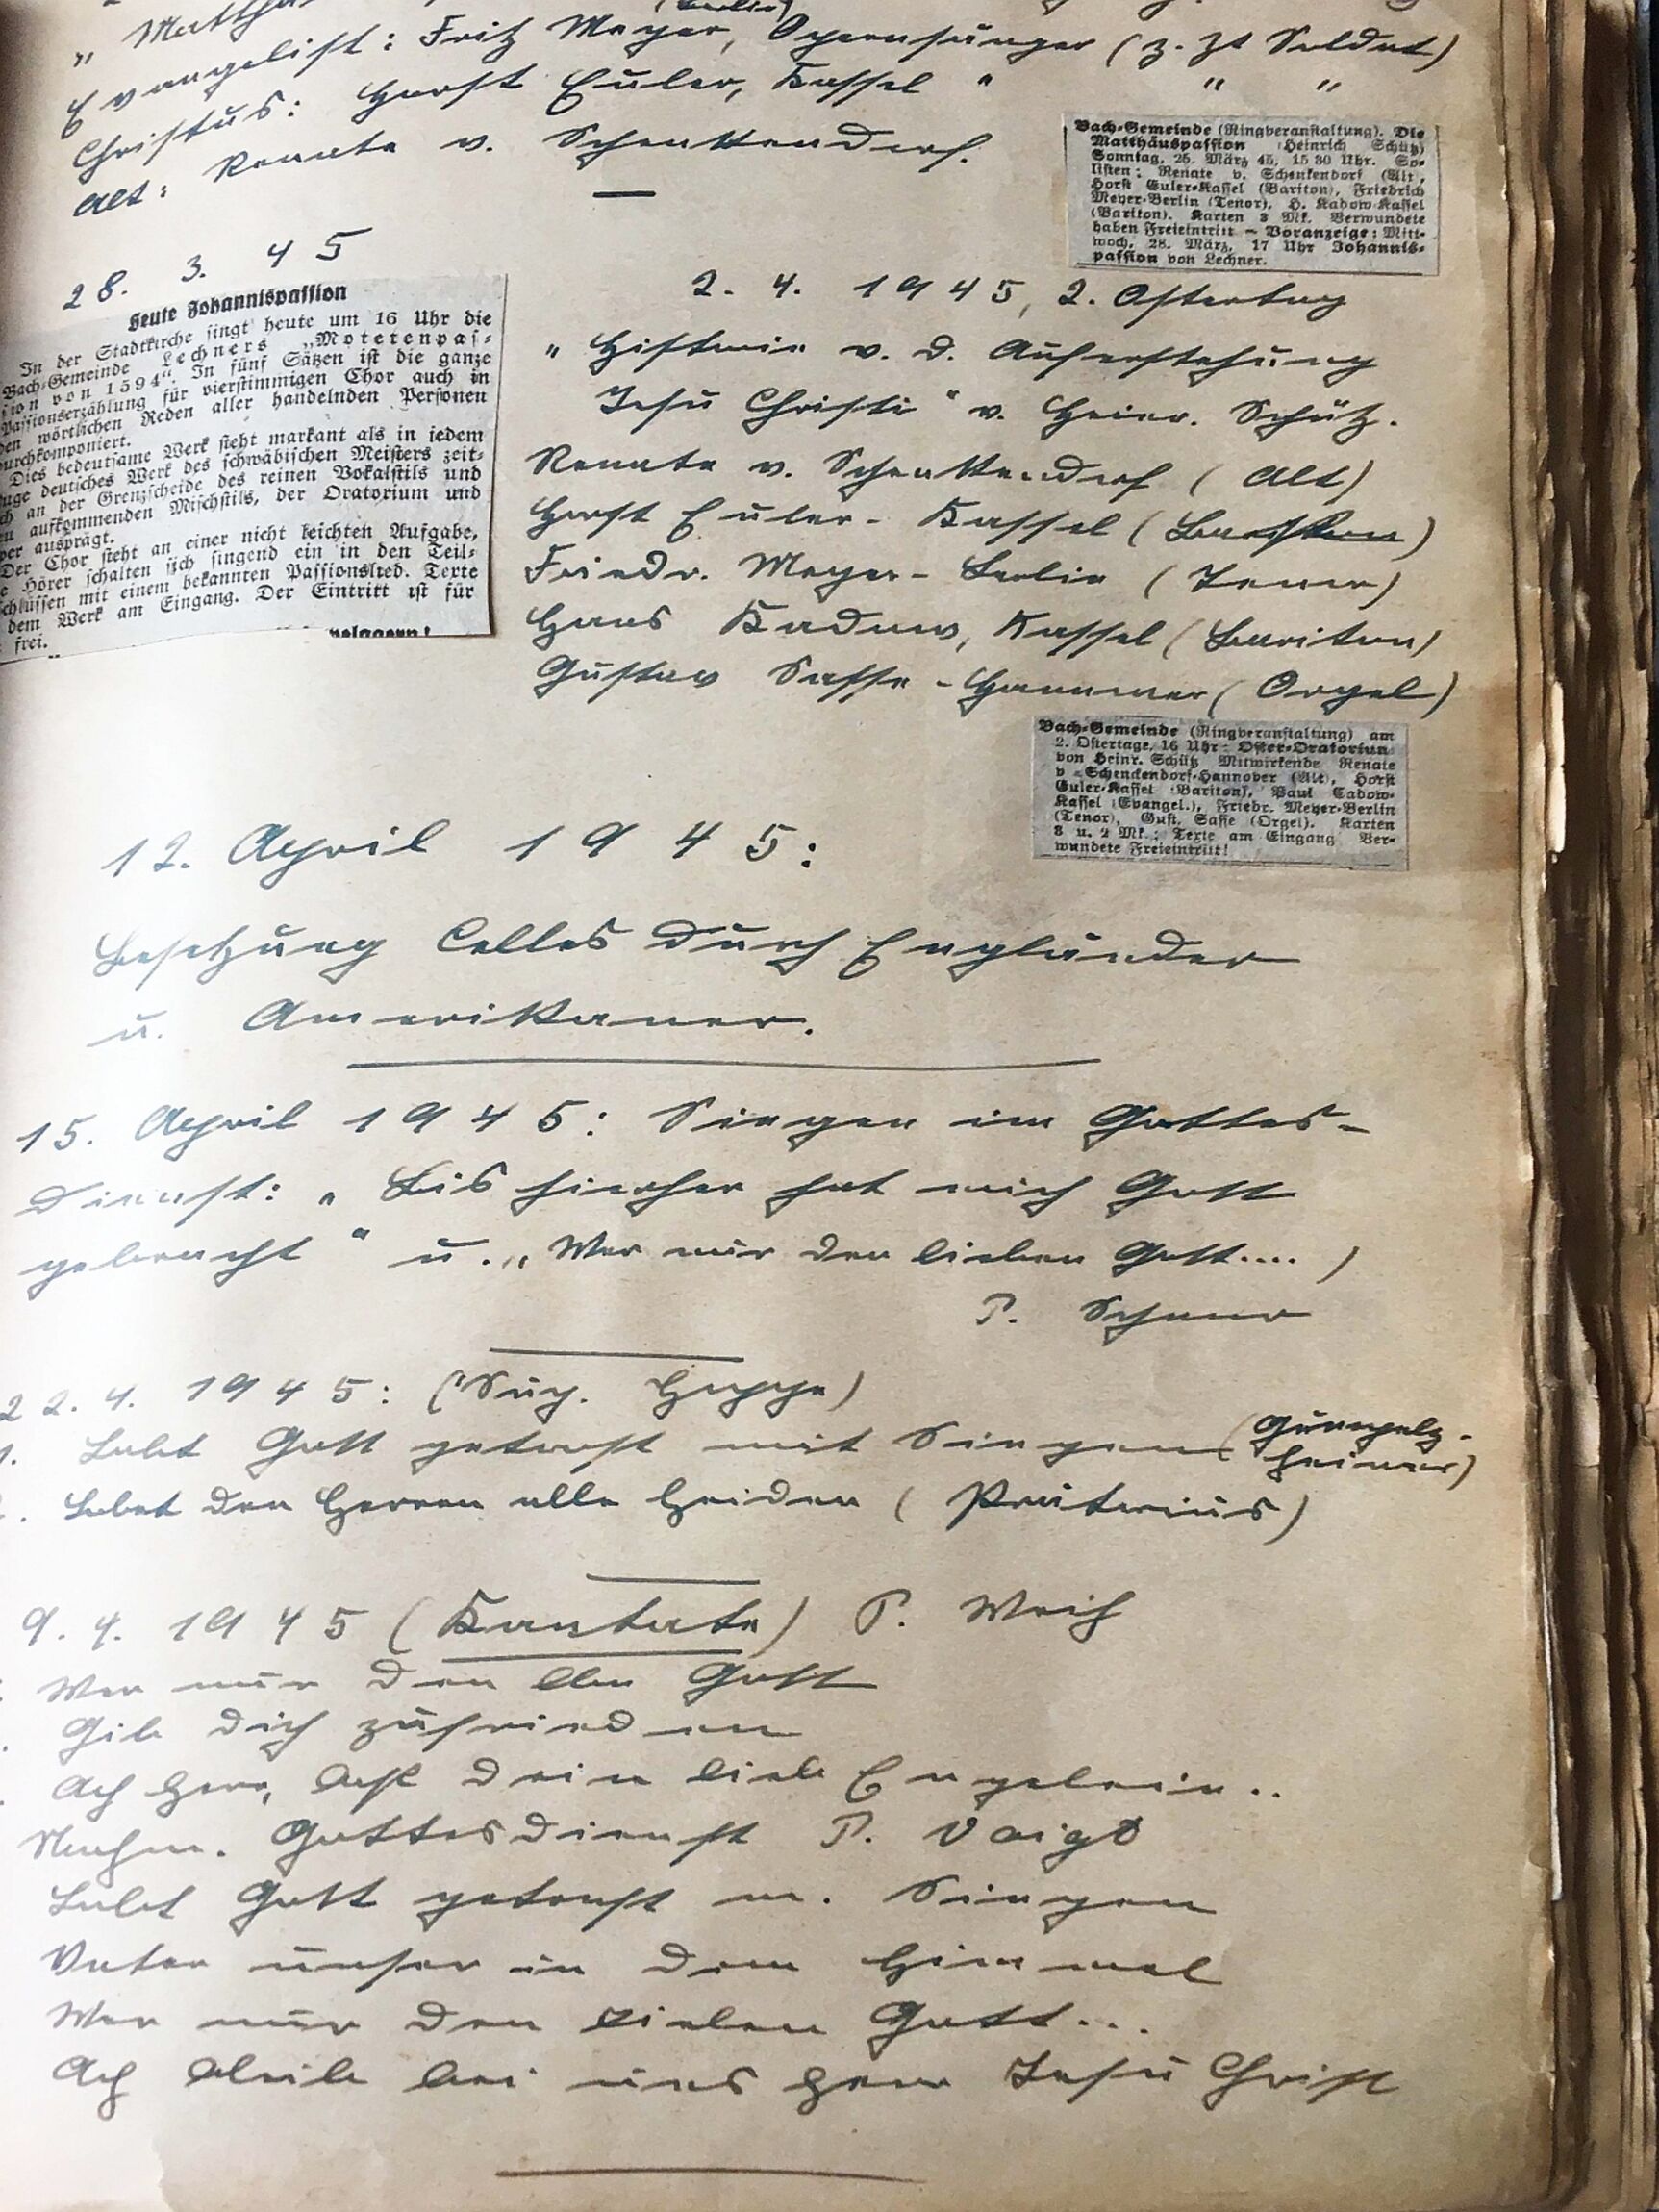 " Matthä
(Berlin)
Evangelist: Fritz Meyer, Opernsänger (z. Zt Soldat)
Christus: Horst Euler, Kassel " " "
Alt: Renate v. Schenkendorf.
Bach-Gemeinde (Ringveranstaltung). Die
Matthäuspassion (Heinrich Schütz)
Sonntag, 25. März 45, 15 30 Uhr. So-
listen: Renate v. Schenkendorf (Alt),
Horst Euler-Kassel (Bariton), Friedrich
Meyer-Berlin (Tenor), H. Kadow-Kassel
(Bariton). Karten 3 Mk. Verwundete
haben Freieintritt – Voranzeige: Mitt-
woch, 28. März, 17 Uhr Johannis-
passion von Lechner.
28. 3. 45
Heute Johannispassion
In der Stadtkirche singt heute um 16 Uhr die
Bach-Gemeinde Lechners „Motetenpas-
sion von 1594“. In fünf Sätzen ist die ganze
Passionserzählung für vierstimmigen Chor auch in
den wörtlichen Reden aller handelnden Personen
durchkomponiert.
Dies bedeutsame Werk steht markant als in jedem
Zuge deutsches Werk des schwäbischen Meisters zeit-
ch an der Grenzscheide des reinen Vokalstils und
en aufkommenden Mischstils, der Oratorium und
per ausprägt.
Der Chor steht an einer nicht leichten Aufgabe,
e Hörer schalten sich singend ein in den Teil-
schlüssen mit einem bekannten Passionslied. Texte
dem Werk am Eingang. Der Eintritt ist für
frei.
2. 4. 1945, 2. Ostertag
" Historie v. d. Auferstehung
Jesu Christi " v. Heinr. Schütz.
Renate v. Schenkendorf (Alt)
Horst Euler-Kassel (Bariton)
Friedr. Meyer-Berlin (Tenor)
Hans Kadow, Kassel (Bariton)
Gustav Sasse-Hannover (Orgel)
Bach-Gemeinde (Ringveranstaltung) am
2. Ostertage, 16 Uhr: Oster-Oratorium
von Heinr. Schütz Mitwirkende Renate
v. Schenckendorf-Hannover (Alt), Horst
Euler-Kassel (Bariton), Paul Cadow-
Kassel (Evangel.), Friedr. Meyer-Berlin
(Tenor), Gust. Sasse (Orgel). Karten
3 u. 2 Mk.; Texte am Eingang Ver-
wundete Freieintritt!
12. April 1945:
Besetzung Celles durch Engländer
u. Amerikaner.
15. April 1945: Singen im Gottes-
dienst: „ Bis hierher hat mich Gott
gebracht " u. „ Wer nur den lieben Gott.... )
P. Schaar
22. 4. 1945: (Sup. Hoppe)
1. Lobt Gott getrost mit Singen (Gumpelz-
heimer)
. Lobet den Herren alle Heiden ( Prätorius)
9. 4. 1945 (Kantate) P. Weih
Wer nur den lben Gott
Gib dich zufrieden
Ach Herr, laß dein lieb Engelein..
Nachm. Gottesdienst P. Voigt
Lobt Gott getrost m. Singen
Vater unser in dem Himmel
Wer nur den lieben Gott...
Ach bleib bei uns Herr Jesu Christ